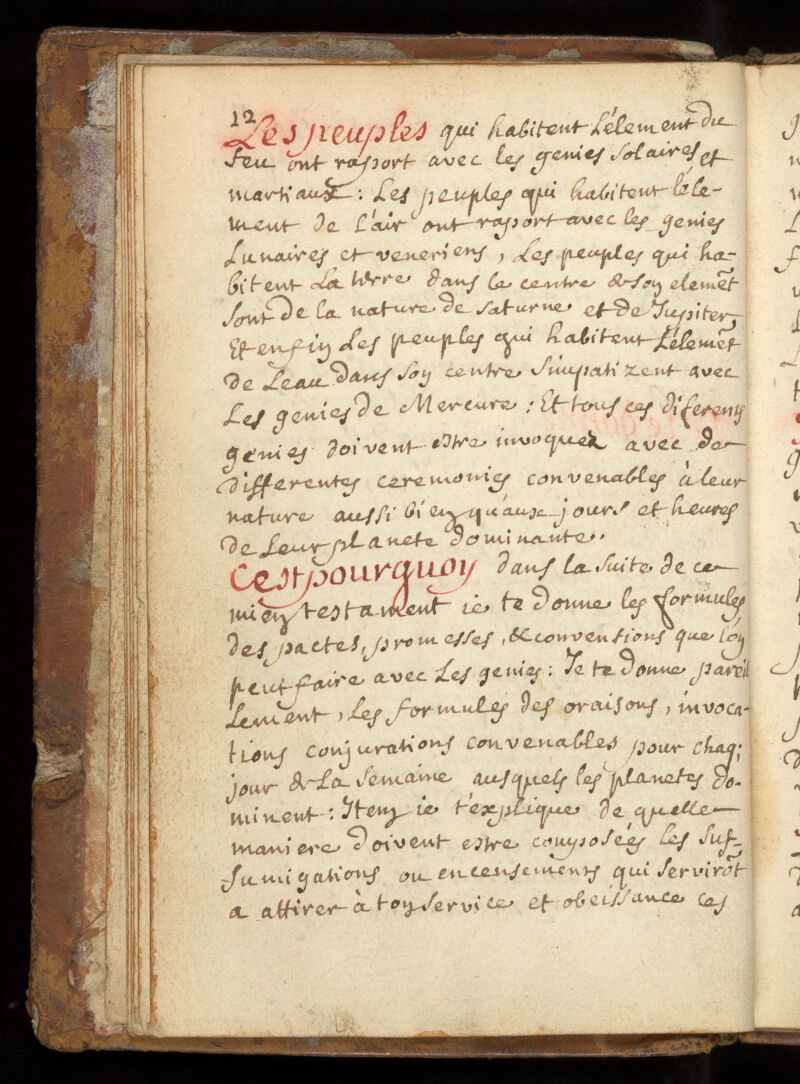 12
Les peuples qui habitent L'élement du
feu ont raport avec les genies solaires et
martiaux : Les peuples qui habitent l'ele-
ment de l'air ont raport avec les genies
Lunaires et veneriens, Les peuples qui ha-
bitent La terre dans le centre de soy elemēt
sont de la nature de saturne et de Jupiter,
Et enfin Les peuples qui habitent L'élemēt
de Leau dans soy centre simpatizent avec
Les genies de Mercure : Et tous ces diferents
genies doivent estre invoquez avec de
differentes ceremonies convenables à leur
nature aussi bien qu'aux jours et heures
de Leur planete dominante.
Cest pourquoy dans la suite de ce
mien testament ie te donne les formules
des pactes, promesses, & conventions que lon
peut faire avec Les genies : Je te donne pareil
Lement, Les formules des oraisons, invoca-
tions conjurations convenables pour chaq;
jour de La semaine ausquels les planetes do-
minent : Item ie t'explique de quelle
maniere doivent estre composées Les suf-
fumigations ou encensements qui servirōt
a attirer à toy service et obeissance ces